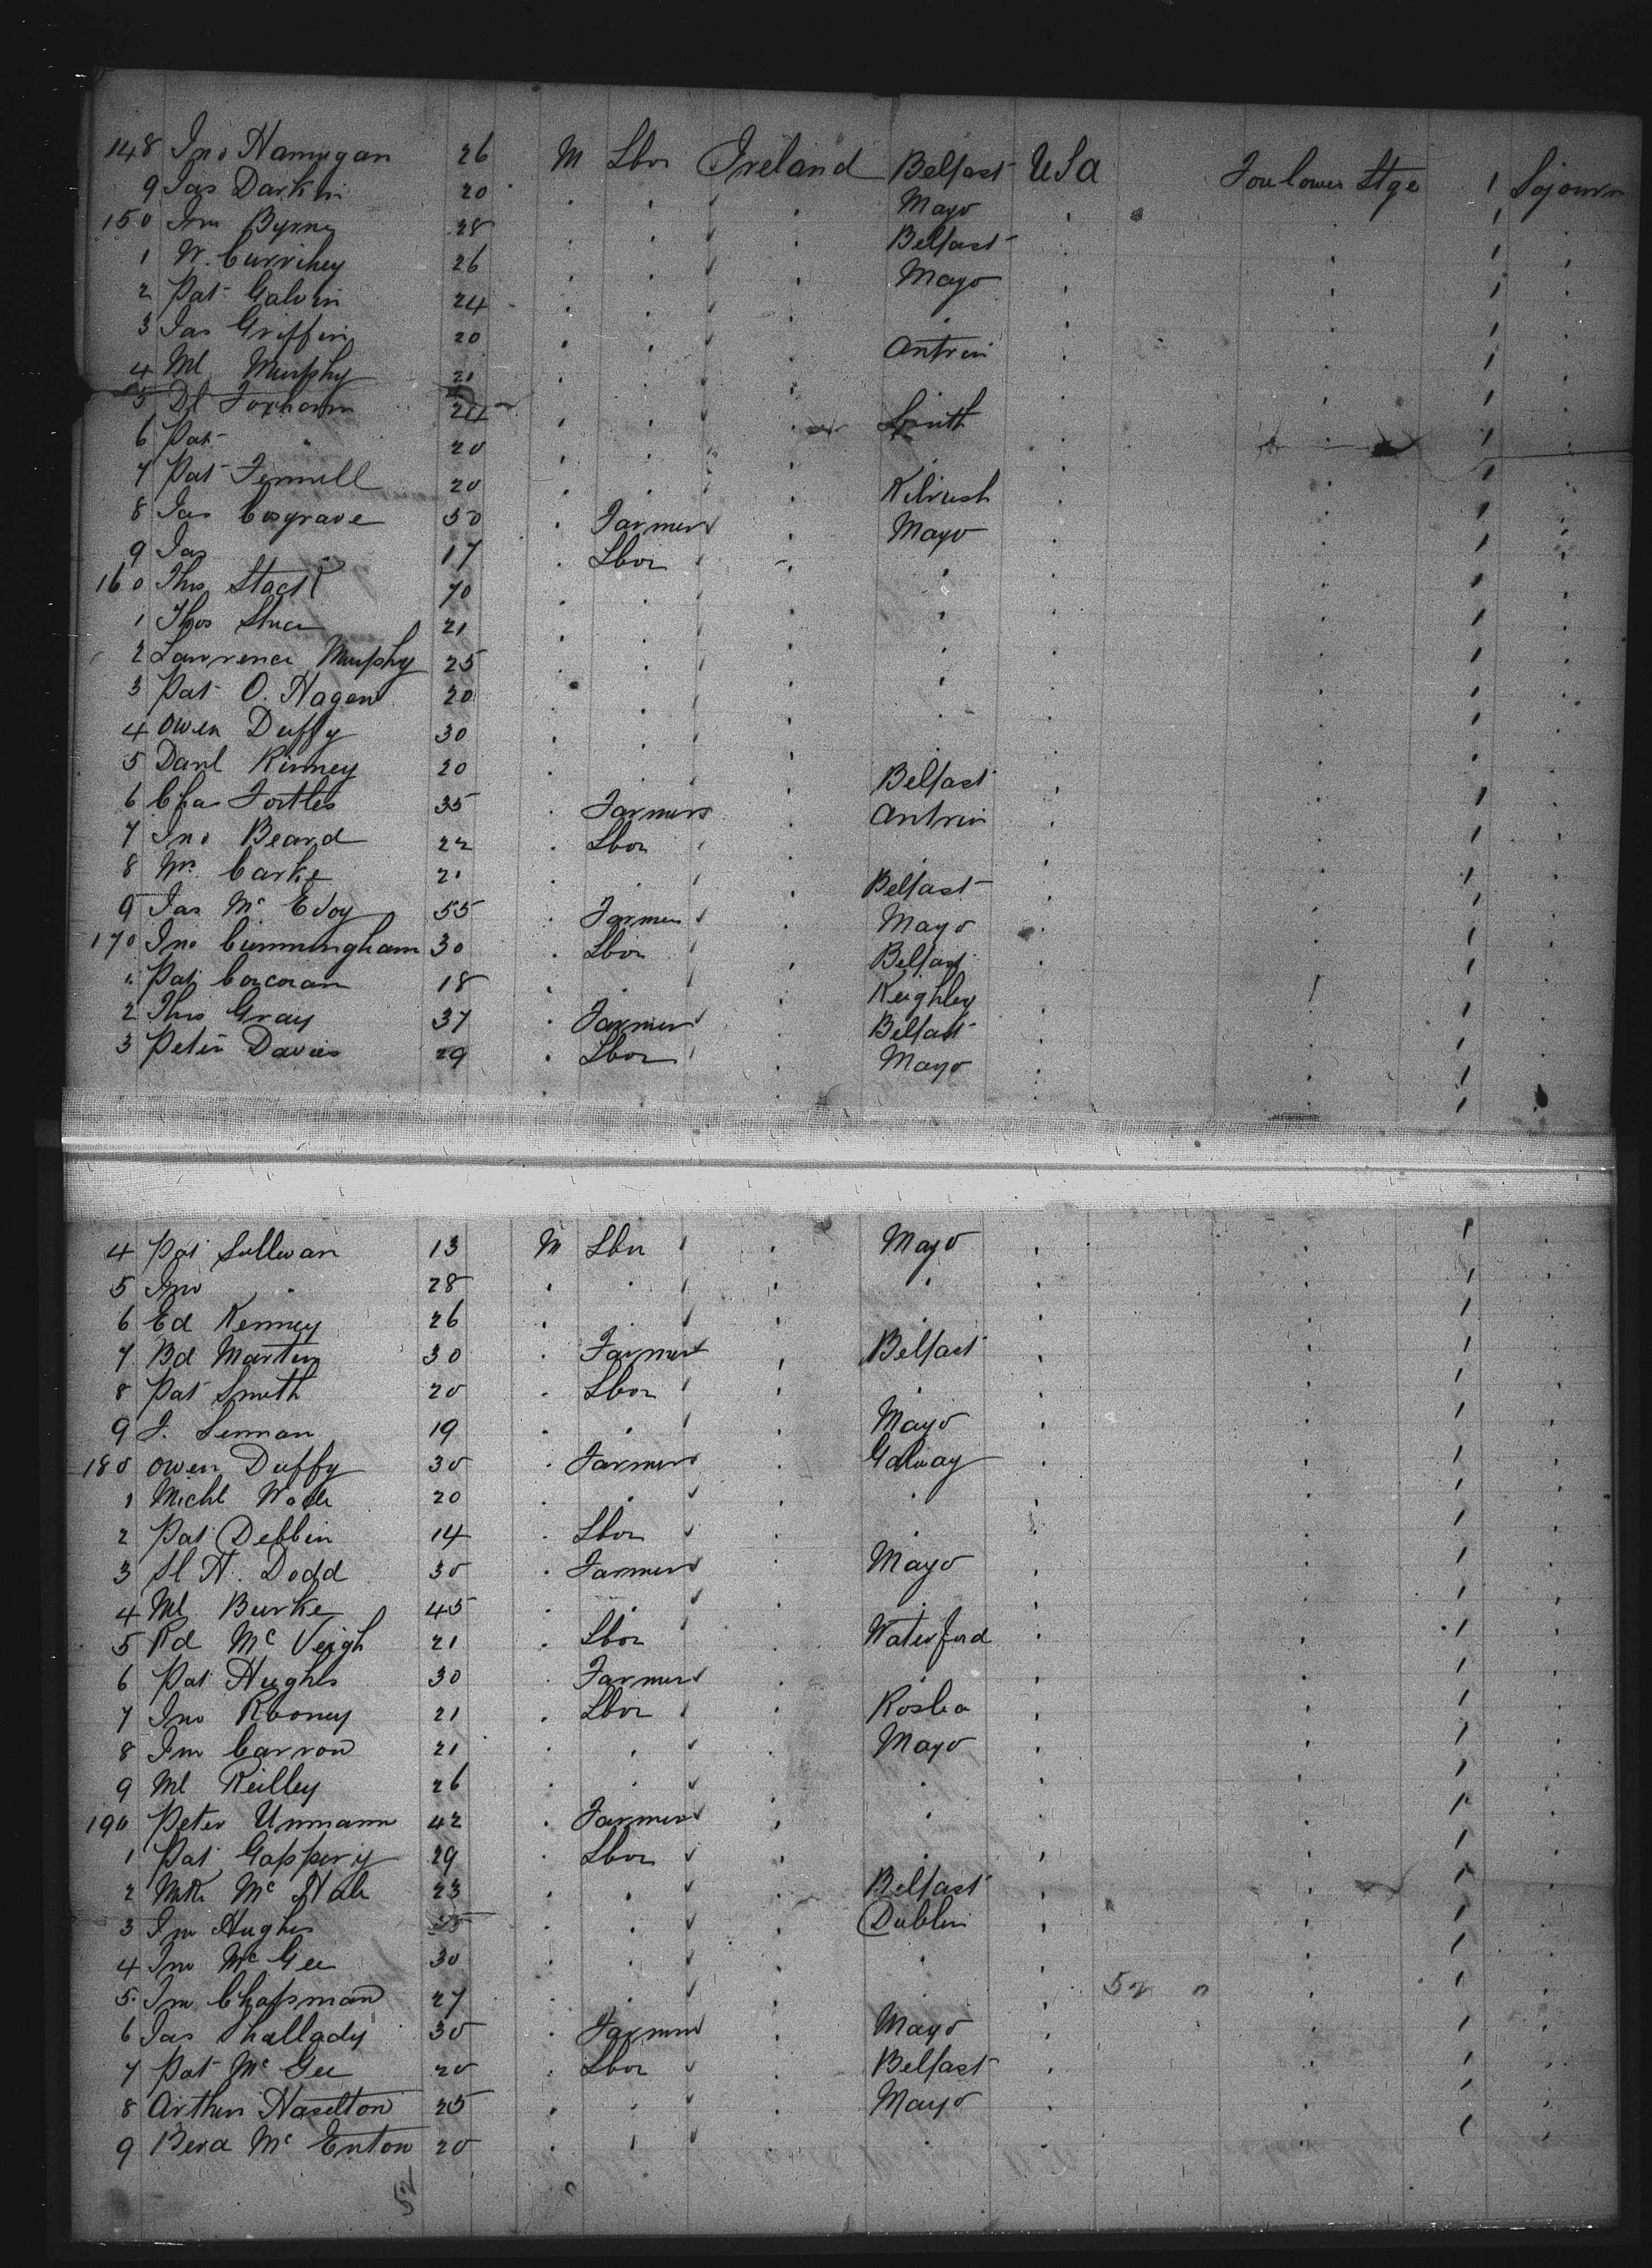 148 Jno Hannigan 26 M Lbor Ireland Belfast USA Fou lower Stge 1 Sojourn
9 Jas Darkin 20 " " " Mayo " " 1 "
150 Jno Byrne 28 " " " Belfast " " 1 "
1 W. Currihey 26 " " " Mayo " " 1 "
2 Pat Galvin 24 " " " " " " 1 "
3 Jas Griffin 20 " " " Antrim " " 1 "
4 Ml Murphy 21 " " " " " " 1 "
5 Dl Foxhorn 24 " " " Louth " " 1 "
6 Pat " 20 " " " " " " 1 "
7 Pat Fennell 20 " " " Kilrush " " 1 "
8 Jas Cosgrave 50 " Farmer " Mayo " " 1 "
9 Jas " 17 " Lbor " " " " 1 "
160 Thos Stack 70 " " " " " " 1 "
1 Thos 21 " " " " " " 1 "
2 Lawrence Murphy 25 " " " " " " 1 "
3 Pat O. Hagan 20 " " " " " " 1 "
4 Owen Duffy 30 " " " " " " 1 "
5 Danl Kinney 20 " " " Belfast " " 1 "
6 Chas Forttes 35 " Farmers " Antrim " " 1 "
7 Jno Beard 22 " Lbor " " " " 1 "
8 Wm Carke 21 " " " Belfast " " 1 "
9 Jas Mc Evoy 55 " Farmer " Mayo " " 1 "
170 Jno Cunningham 30 " Lbor " Belfast " " 1 "
1 Pat Corcoran 18 " " " Keighley " " 1 "
2 Thos Gray 37 " Farmer " Belfast " " 1 "
3 Peter Davies 29 " Lbor " Mayo " " 1 "
4 Pat Sullivan 13 M Lbor " Mayo " " 1 "
5 Jno " 28 " " " " " " 1 "
6 Ed Kenney 26 " " " " " " 1 "
7 Bd Martin 30 " Farmer " Belfast " " 1 "
8 Pat Smith 20 " Lbor " " " " 1 "
9 J. Lennan 19 " " " Mayo " " 1 "
180 Owen Duffy 30 " Farmer " Galway " " 1 "
1 Michl Wade 20 " " " " " " 1 "
2 Pat Debbin 14 " Lbor " " " " 1 "
3 H. Dodd 30 " Farmer " Mayo " " 1 "
4 Ml Burke 45 " " " " " " 1 "
5 Rd Mc Veigh 21 " Lbor " Waterford " " 1 "
6 Pat Hughes 30 " Farmer " " " " 1 "
7 Jno Rooney 21 " Lbor " Roslea " " 1 "
8 Jno Carron 21 " " " Mayo " " 1 "
9 Ml Reilley 26 " " " " " " 1 "
190 Peter Unmann 42 " Farmer " " " " 1 "
1 Pat Gappery 29 " Lbor " " " " 1 "
2 Mc Hale 23 " " " Belfast " " 1 "
3 Jno Hughes 25 " " " Dublin " " 1 "
4 Jno McGee 30 " " " " " " 1 "
5 Jno Chapman 27 " " " " " 52 " 1 "
6 Jas Shallady 30 " Farmer " Mayo " " 1 "
7 Pat McGee 20 " Lbor " Belfast " " 1 "
8 Arthur Haselton 25 " " " Mayo " " 1 "
9 Bernd Mc Enton 20 " " " " " " 1 "
52